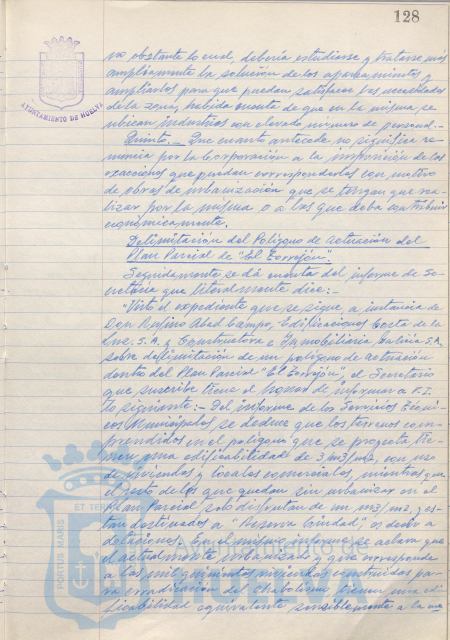 128
AYUNTAMIENTO DE HUELVA
no obstante lo cual, debería estudiarse y tratarse más
ampliamente la solución de los aparcamientos y
ampliarlos para que puedan satisfacer las necesidades
de la zona, habida cuenta de que en la misma se
ubican industrias con elevado número de personal.-
Quinto.- Que cuanto antecede no significa re-
nuncia por la Corporación a la imposición de las
exacciones que puedan corresponderles con motivo
de obras de urbanización que se tengan que rea-
lizar por la misma o a las que deba contribuir
económicamente.
Delimitación del Polígono de actuación del
Plan Parcial de "El Torrejón".
Seguidamente se dá cuenta del informe de Se-
cretaría que literalmente dice:-
"Visto el expediente que se sigue a instancia de
Don Rufino Abad Campo, Edificaciones Costa de la
Luz, S.A. y Constructora e Inmobiliaria Galicia S.A.
sobre delimitación de un polígono de actuación
dentro del Plan Parcial "El Torrejón", el Secretario
que suscribe tiene el honor de informar a V.I.
lo siguiente:- Del informe de los Servicios Técni-
cos Municipales se deduce que los terrenos com-
prendidos en el polígono que se proyecta tie-
nen una edificabilidad de 3 m3/m2, con uso
de viviendas y locales comerciales, mientras que
el resto de los que quedan sin urbanizar en el
Plan Parcial, solo disfrutan de un m3/m2, y es-
tan destinados a "Reserva Ciudad", es decir a
dotaciones. En el mismo informe se aclara que
el actualmente urbanizado y que corresponde
a las mil quinientas viviendas construidas pa-
ra erradicación del chabolismo tienen una edi-
ficabilidad equivalente sensiblemente a la me
PORTUS MARIS
ET TERRÆ
Ayuntamiento de
HUELVA